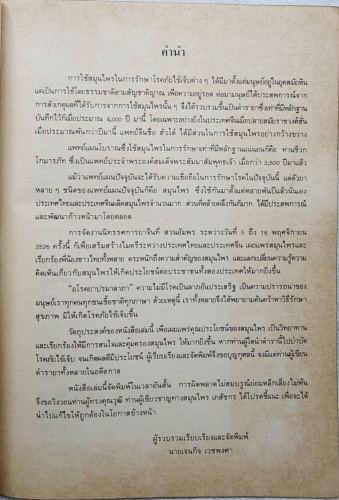 คำนำ
การใช้สมุนไพรในการรักษาโรคภัยไข้เจ็บต่าง ๆ ได้มีมาตั้งแต่มนุษย์อยู่ในยุคสมัยหิน
แต่เป็นการใช้โดยธรรมชาติตามสัญชาติญาณ เพื่อความอยู่รอด ต่อมามนุษย์ได้ประสพการณ์จาก
การสังเกตุผลที่ได้รับจากการใช้สมุนไพรนั้น ๆ จึงได้รวบรวมขึ้นเป็นตำรายาซึ่งเท่าที่มีหลักฐาน
บันทึกไว้ก็เมื่อประมาณ 4,000 ปี มานี้ โดยเฉพาะอย่างยิ่งในประเทศจีนเมื่อปลายสมัยราชวงศ์ฮั่น
เมื่อประมาณพันกว่าปีมานี้ แพทย์จีนชื่อ ฮัวโต๋ ได้มีส่วนในการใช้สมุนไพรอย่างกว้างขวาง
แพทย์แผนโบราณซึ่งใช้สมุนไพรในการรักษาเท่าที่มีหลักฐานแน่นอนก็คือ ท่านชีวก
โกมารภัท ซึ่งเป็นแพทย์ประจำพระองค์สมเด็จพระสัมมาสัมพุทธเจ้า เมื่อกว่า 2,500 ปีมาแล้ว
แม้ว่าแพทย์แผนปัจจุบันจะได้รับความเชื่อถือในการรักษาโรคในปัจจุบันนี้ แต่ตัวยา
หลาย ๆ ชนิดของแพทย์แผนปัจจุบันก็คือ สมุนไพร ซึ่งใช้กันมาตั้งแต่หลายพันปีแล้วนั่นเอง
ประเทศไทยและประเทศจีนผลิตสมุนไพรจำนวนมาก ส่วนที่คล้ายคลึงกันก็มาก ได้มีประสพการณ์
และพัฒนาก้าวหน้ามาโดยตลอด
การจัดงานนิทรรศการยาจีนที่ สวนอัมพร ระหว่างวันที่ 5 ถึง 16 พฤศจิกายน
2526 ครั้งนี้ ก็เพื่อเสริมสร้างไมตรีระหว่างประเทศไทยและประเทศจีน เผยแพร่สมุนไพรและ
เรียกร้องพี่น้องชาวไทยทั้งหลาย ตระหนักถึงความสำคัญของสมุนไพร และแลกเปลี่ยนความรู้ความ
คิดเห็นเกี่ยวกับสมุนไพรให้เกิดประโยชน์ต่อประชาชนทั้งสองประเทศให้มากยิ่งขึ้น
"อโรคยาปรมาลาภา" ความไม่มีโรคเป็นลาภอันประเสริฐ เป็นความปรารถนาของ
มนุษย์เราทุกคนทุกชนเชื้อชาติทุกภาษา ด้วยเหตุนี้ เราทั้งหลายจึงได้พยายามค้นคว้าหาวิธีรักษา
สุขภาพ มิให้เกิดโรคภัยไข้เจ็บขึ้น
วัตถุประสงค์ของหนังสือเล่มนี้ เพื่อเผยแพร่คุณประโยชน์ของสมุนไพร เป็นวิทยาทาน
และเรียกร้องให้มีการสนใจและคุ้มครองสมุนไพร ให้มากยิ่งขึ้น หากท่านผู้ใดนำตำรานี้ไปบำบัด
โรคภัยไข้เจ็บ จนเกิดผลดีมีประโยชน์ ผู้เรียบเรียงและจัดพิมพ์จึงขอบุญกุศลนี้ จงมีแด่ท่านผู้เขียน
ตำรายาทั้งหลายในอดีตกาล
หนังสือเล่มนี้จัดพิมพ์ในเวลาอันสั้น การผิดพลาดไม่สมบูรณ์ย่อมหลีกเลี่ยงไม่พ้น
จึงขอวิงวอนท่านผู้ทรงคุณวุฒิ ท่านผู้เชี่ยวชาญทางสมุนไพร เภสัชกร ได้โปรดชี้แนะ เพื่อจะได้
นำไปแก้ไขให้ถูกต้องในโอกาสข้างหน้า
ผู้รวบรวมเรียบเรียงและจัดพิมพ์
นายเจนกิจ เวชพงศา